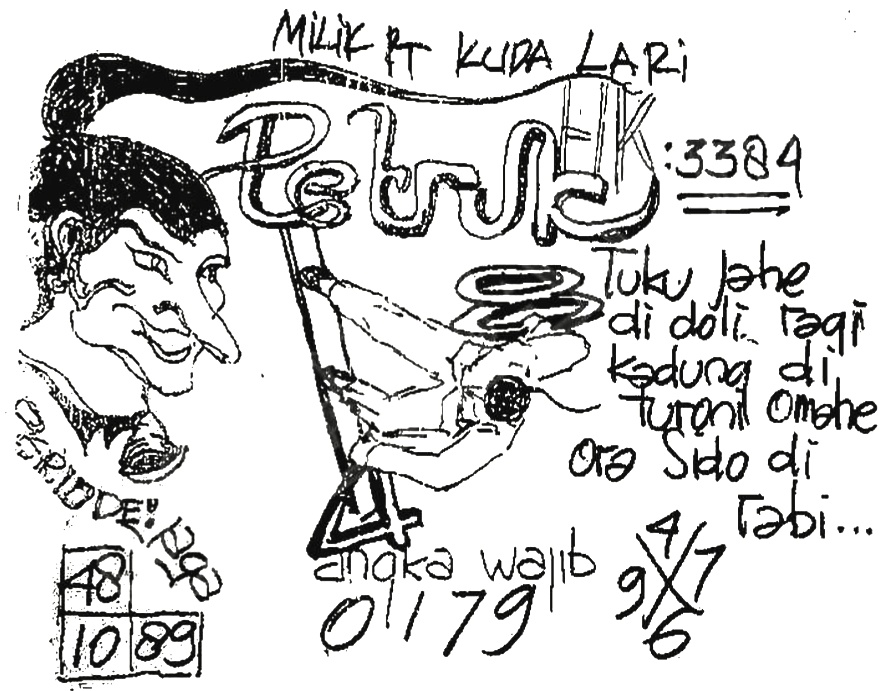 MiLiK PT KUDA LARi
Petruk
HK :3384
Tuku Jahe
di doli ragi
kadung di
Turoni Omahe
Ora Sido di
rabi...
4
angka wajib
0179
4
9X7
6
48
10 89